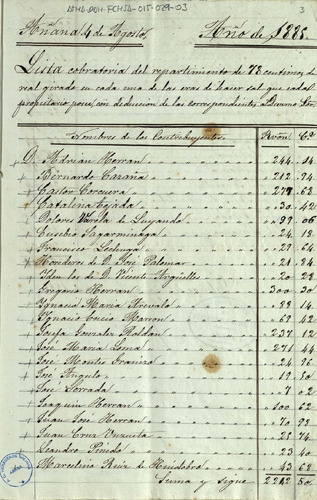 ATHA-DAH-FCHSA-015-029-03
3
Añana 4 de Agosto Año de 1885.
Lista cobratoria del repartimiento de 73 centimos de
real girado en cada una de las eras de hacer sal que cada
propietario posee, con deduccion de las correspondientes a
Nombres de los Contribuyentes Rvon. Cs.
D. Adrian Herran 244. 14
Bernardo Cazaña 212. 94
Castor Corcuera 63
Catalina Tejada 30. 42
Dolores Varela de Luyando 99 06
Eusebio Sagarminaga 24. 18
Francisco 29. 64
Herederos de D. José Palomar 21. 84
Idem los de D. Vicente Argüelles 20 28
Gregorio Herran 300. 30
Ignacia Maria Arevalo 88 14
Ignacio Lucio Marron 69. 42
Josefa Gonzalez Roldan 237. 12
José Maria Loma 271 44
José Montes 24 96
José Angulo 19. 50
José Serrada 7 02
Joaquin Herran 100 62
Juan José Herran 70. 2
Juan Cruz Unzueta 25 74
Leandro Pinedo 23 40
Marcelina Ruiz de Huidobro 43 68
Suma y sigue 2212 50